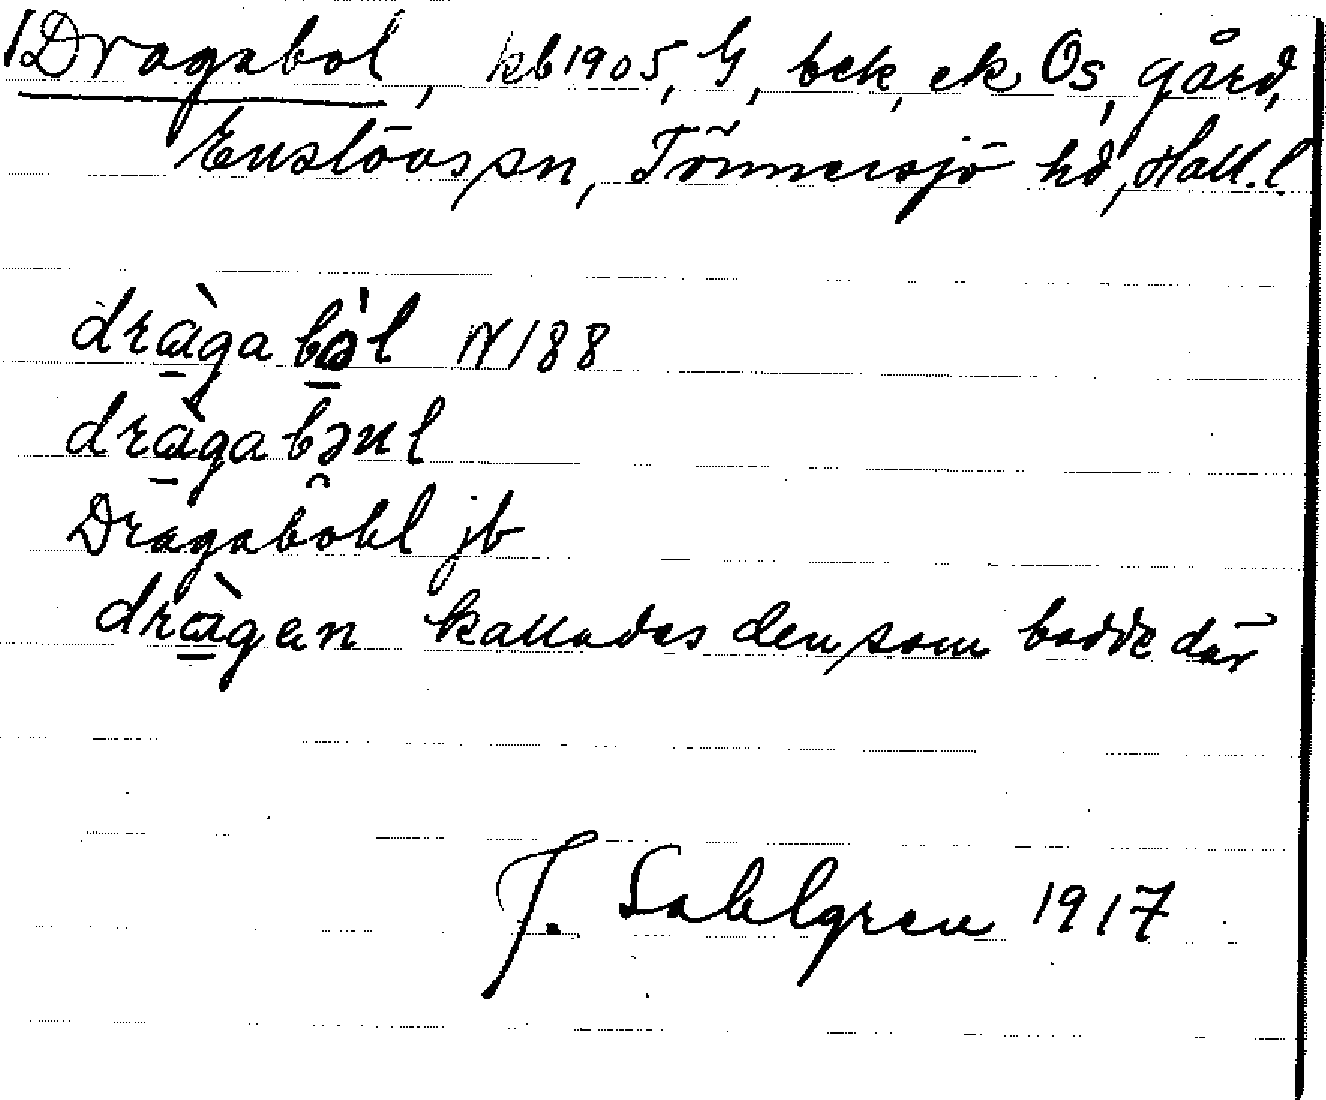 1Dragabol, kb1905, G, bek, ek Os, gård,
Enslövs sn, Tönnersjö hd, Hall. l.
drɑ̀ga bə̀l N 188
drɑ̀ga bəul
Dragabohl jb
drɑ̀gen kallades den som bodde där
J. Sahlgren 1917